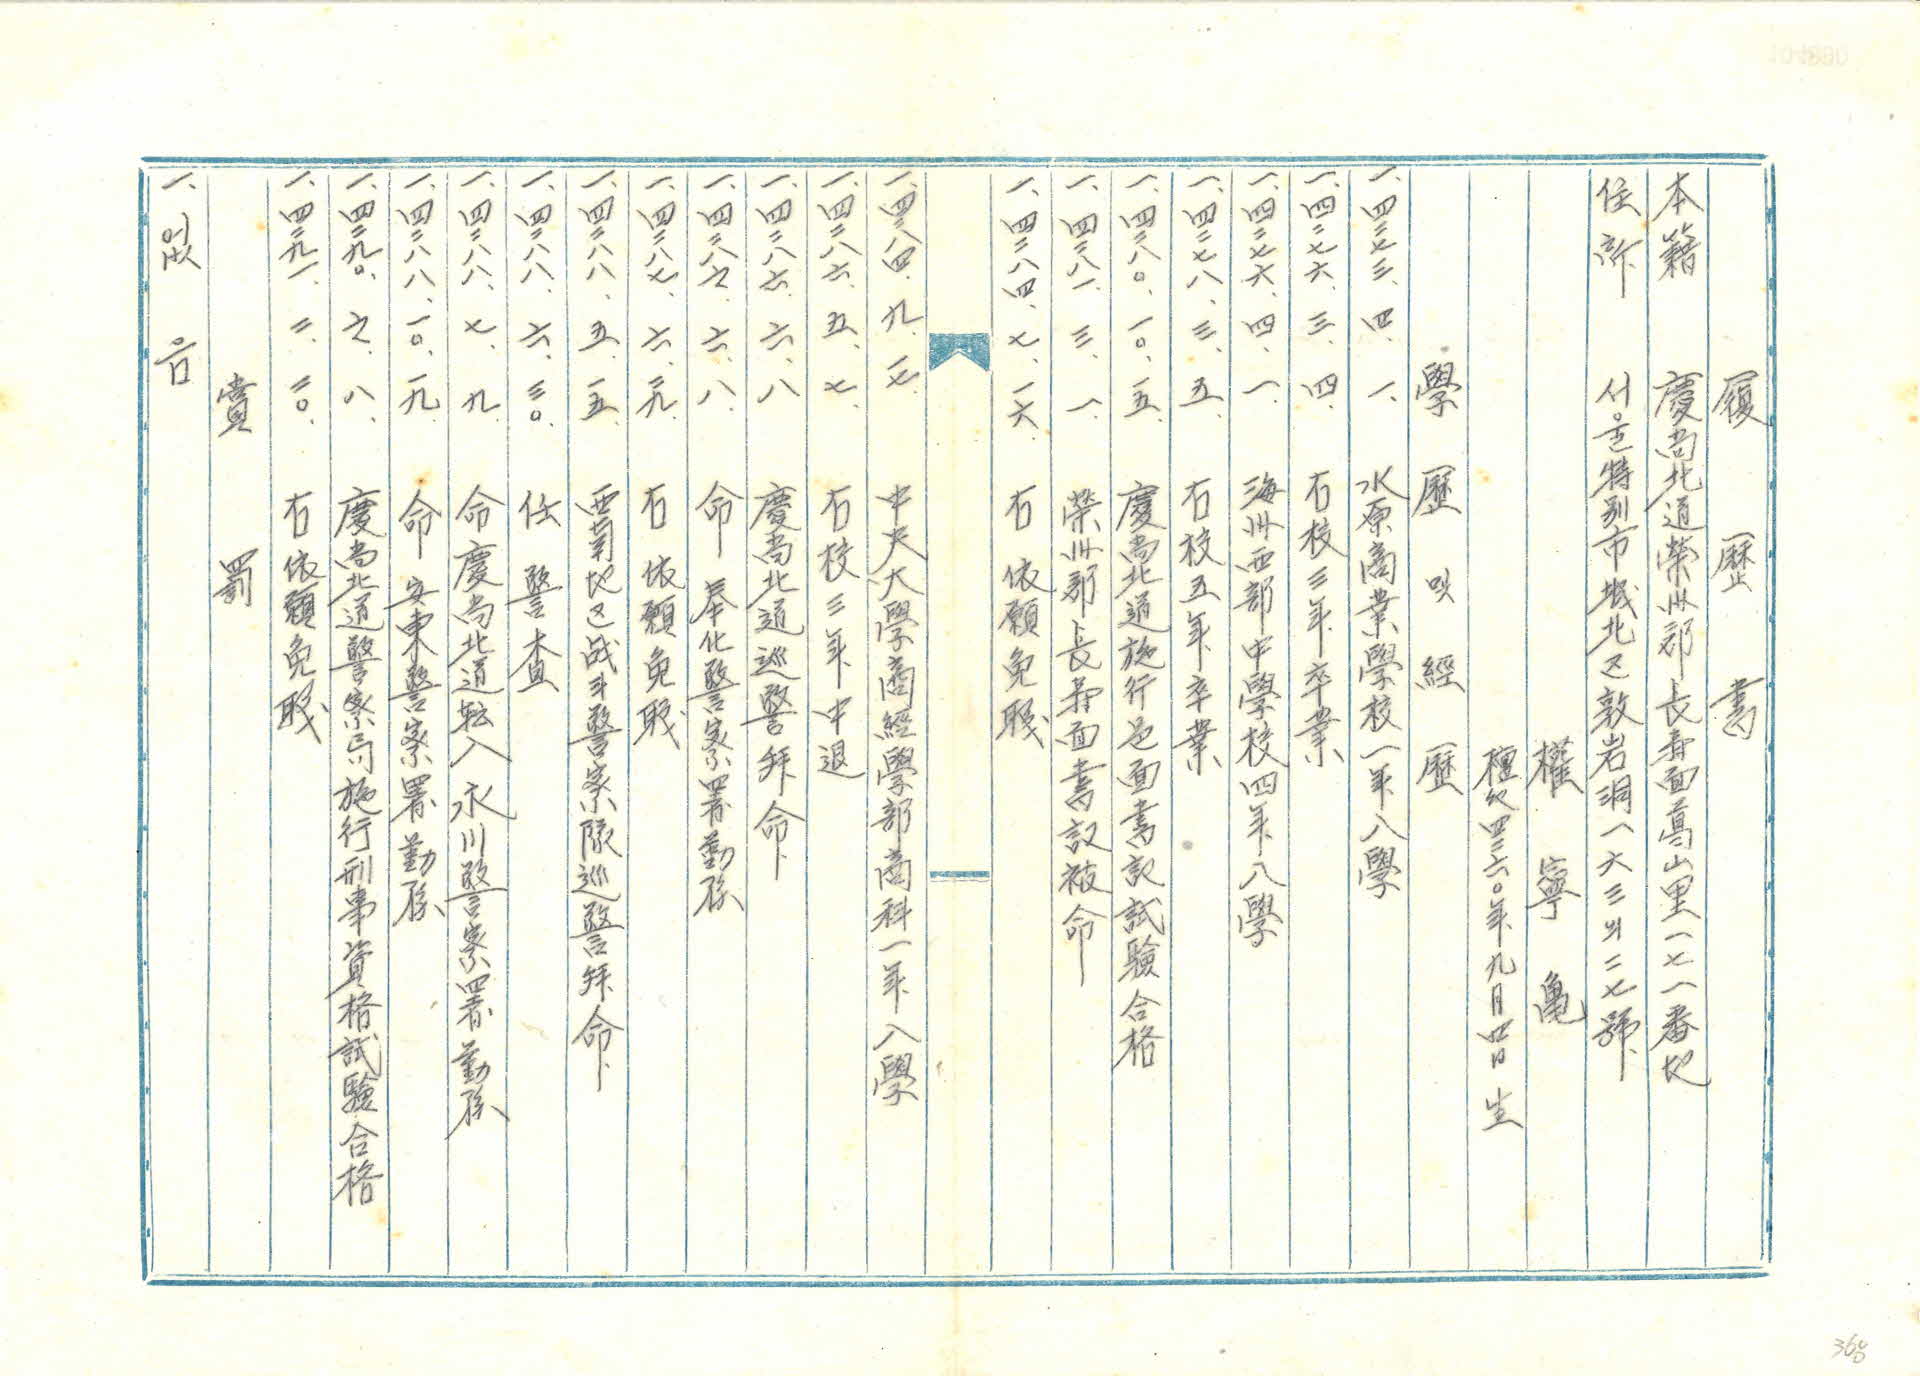 履歷書
本籍 慶尚北道榮州郡長壽面葛山里一七一番地
住所 서울特別市城北区敦岩洞一六三의二七號
權寧龜
檀紀四二六〇年九月廿四日生
學歷 및 經歷
一、四二七三、四、一、 水原商業學校一年入學
一、四二七六、三、四 右校三年卒業
一、四二七六、四、一 海州西部中學校四年入學
一、四二七八、三、五 右校五年卒業
一、四二八〇、一〇、一五 慶尚北道施行邑面書記試驗合格
一、四二八一、三、一 榮州郡長壽面書記被命
一、四二八四、七、一六 右依願免職
一、四二八四、九、一七 中央大學商經學部商科一年入學
一、四二八六、五、七 右校三年中退
一、四二八六、六、八 慶尚北道巡警拜命
一、四二八六、六、八 命 奉化警察署勤務
一、四二八七、六、二九 右依願免職
一、四二八八、五、一五 西南地区战斗警察隊巡警拜命
一、四二八八、六、三〇 任 警査
一、四二八八、七、九 命 慶尚北道転入 永川警察署勤務
一、四二八八、一〇、一九 命 安東警察署勤務
一、四二九〇、六、八、 慶尚北道警察局施行刑事資格試驗合格
一、四二九一、二、二〇、 右依願免職
賞罰
一、없음
368